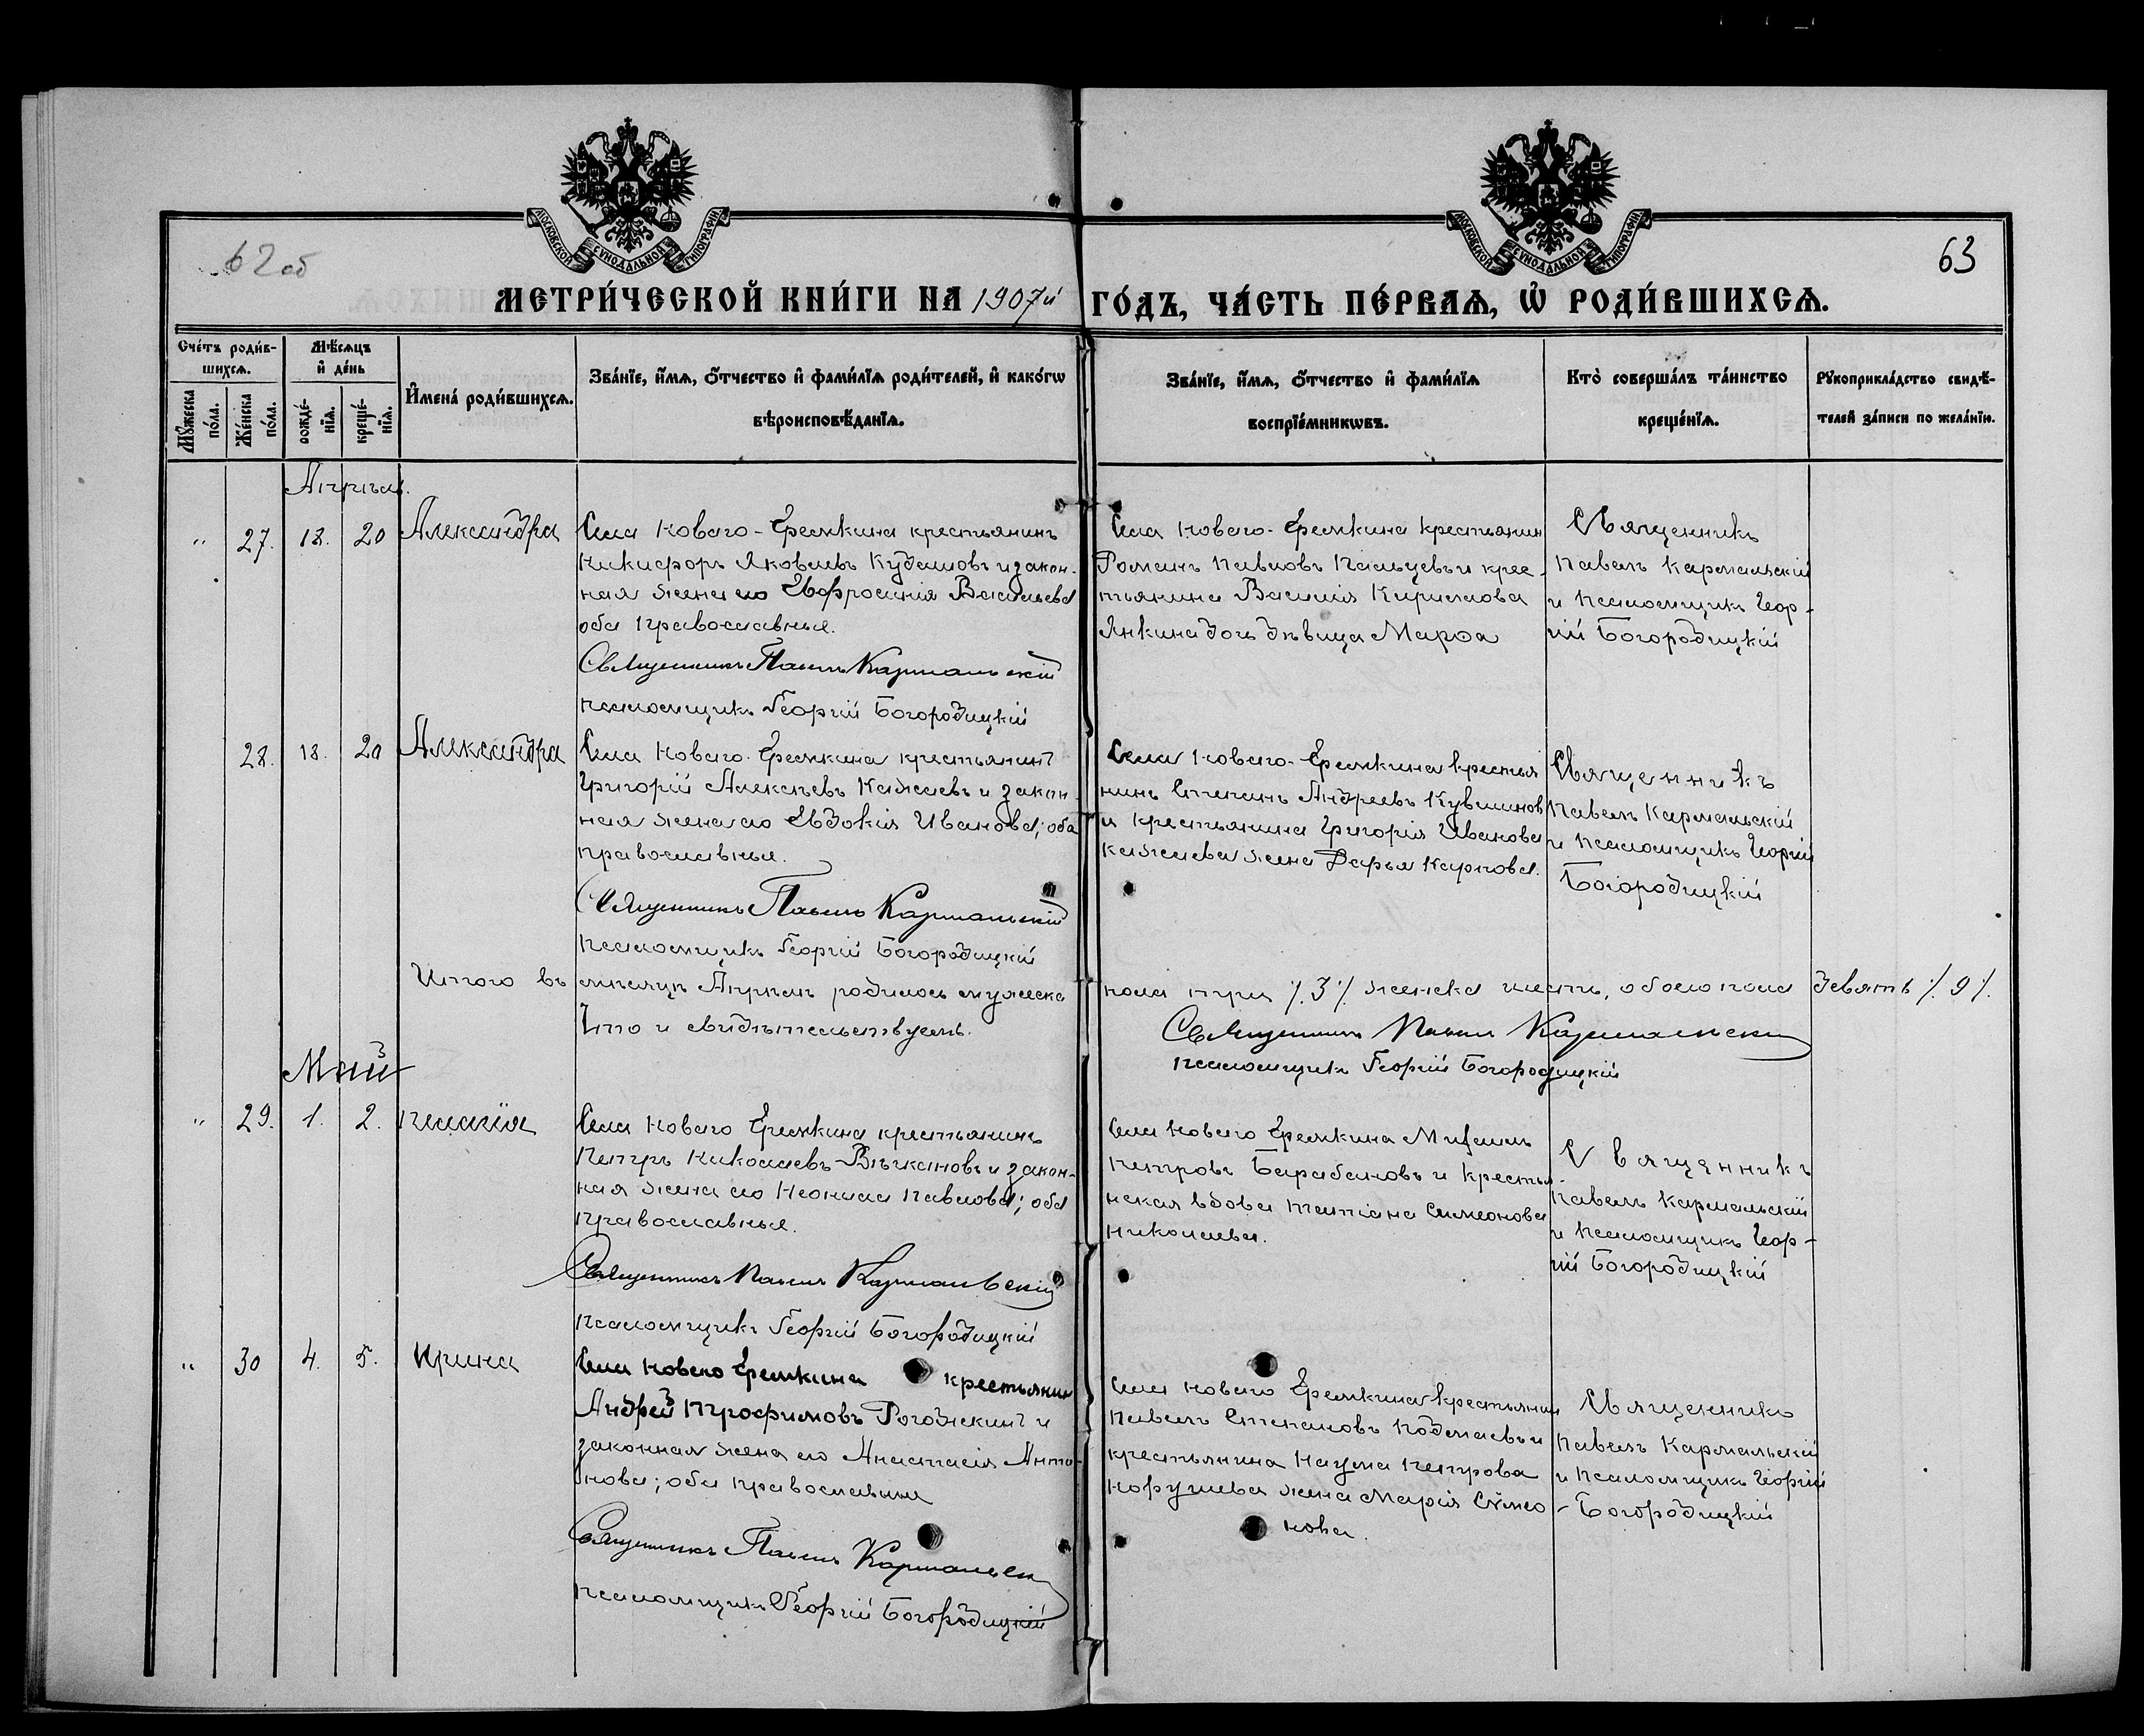 МОСКОВСКОЙ СУНОДАЛЬНОЙ ТИПОГРАФІИ
МОСКОВСКОЙ СУНОДАЛЬНОЙ ТИПОГРАФІИ
62 об
63
МЕТРИ́ЧЕСКОЙ КНИ́ГИ НА 1907й ГО́ДЪ, ЧА́СТЬ ПЕ́РВАѦ, Ѡ҆ РОДИ́ВШИХСѦ.
Сче́тъ роди́в-
шихсѧ.
Мѹ́жеска по́ла.
Же́нска по́ла.
Мѣ́сѧцъ
и҆ де́нь
рожде́-
нїѧ.
креще́-
нїѧ.
И҆мена̀ роди́вшихсѧ.
Зва́нїе, и҆́мѧ, ѻ҆́тчество и҆ фами́лїѧ роди́телей, и҆ како́гѡ
вѣроисповѣ́данїѧ.
Зва́нїе, и҆́мѧ, ѻ҆́тчество и҆ фами́лїѧ
воспрїе́мникѡвъ.
Кто̀ соверша́лъ та́инство
креще́нїѧ.
Рѹкоприкла́дство свидѣ́-
телей за́писи по жела́нїю.
Апрѣль.
" 27. 18. 20 Александра
Села Новаго-Еремкина крестьянинъ
Никифоръ Яковлевъ Кудашовъ и закон-
ная жена его Евфросинія Васильева
оба православные.
Священникъ Павелъ Кармальскій
Псаломщикъ Георгій Богородицкій
Села Новаго-Еремкина крестьянин
Романъ Павловъ Пальцевъ и кре-
стьянина Василія Кириллова
Янкина дочь дѣвица Марѳа
Священникъ
Павелъ Кармальскій
и Псаломщикъ Геор-
гій Богородицкій
28. 18. 20 Александра
Села Новаго-Еремкина крестьянинъ
Григорій Алексѣевъ Кажаевъ и закон-
ная жена его Евдокія Иванова; оба
православные.
Священникъ Павелъ Кармальскій
Псаломщикъ Георгій Богородицкій
Села Новаго-Еремкина крестья
нинъ Степанъ Андреевъ Кувшинов
и крестьянина Григорія Иванова
Кажаева жена Дарья Карпова.
Священникъ
Павелъ Кармальскій
и Псаломщикъ Георгій
Богородицкій
Итого въ мѣсяцѣ Апрѣлѣ родилось мужеска пола три /.3/. женска шесть, обоего пола девять /.9/.
Что и свидѣтельствуемъ.
Священникъ Павелъ Кармальскій
Псаломщикъ Георгій Богородицкій
Май
" 29. 1. 2. Пелагія
Села Новаго Еремкина крестьянинъ
Петръ Николаевъ Вѣчкановъ и закон-
ная жена его Неонила Павлова; оба
православные.
Священникъ Павелъ Кармальскій
Псаломщикъ Георгій Богородицкій
Села Новаго Еремкина Михаилъ
Петровъ Барабановъ и крестья
нская вдова Татіана Симеонова
Николаева.
Священникъ
Павелъ Кармальскій
и Псаломщикъ Геор-
гій Богородицкій
" 30 4. 5. Ирина
Села Новаго Еремкина крестьянин
Андрей Трофимовъ Рогожкинъ и
законная жена его Анастасія Анто-
нова; оба православные
Священникъ Павелъ Кармальскій
Псаломщикъ Георгій Богородицкій
Села Новаго Еремкина крестьянин
Павелъ Степановъ и
крестьянина Наума Петрова
жена Марія Симео-
нова.
Священникъ
Павелъ Кармальскій
и Псаломщикъ Георгій
Богородицкій